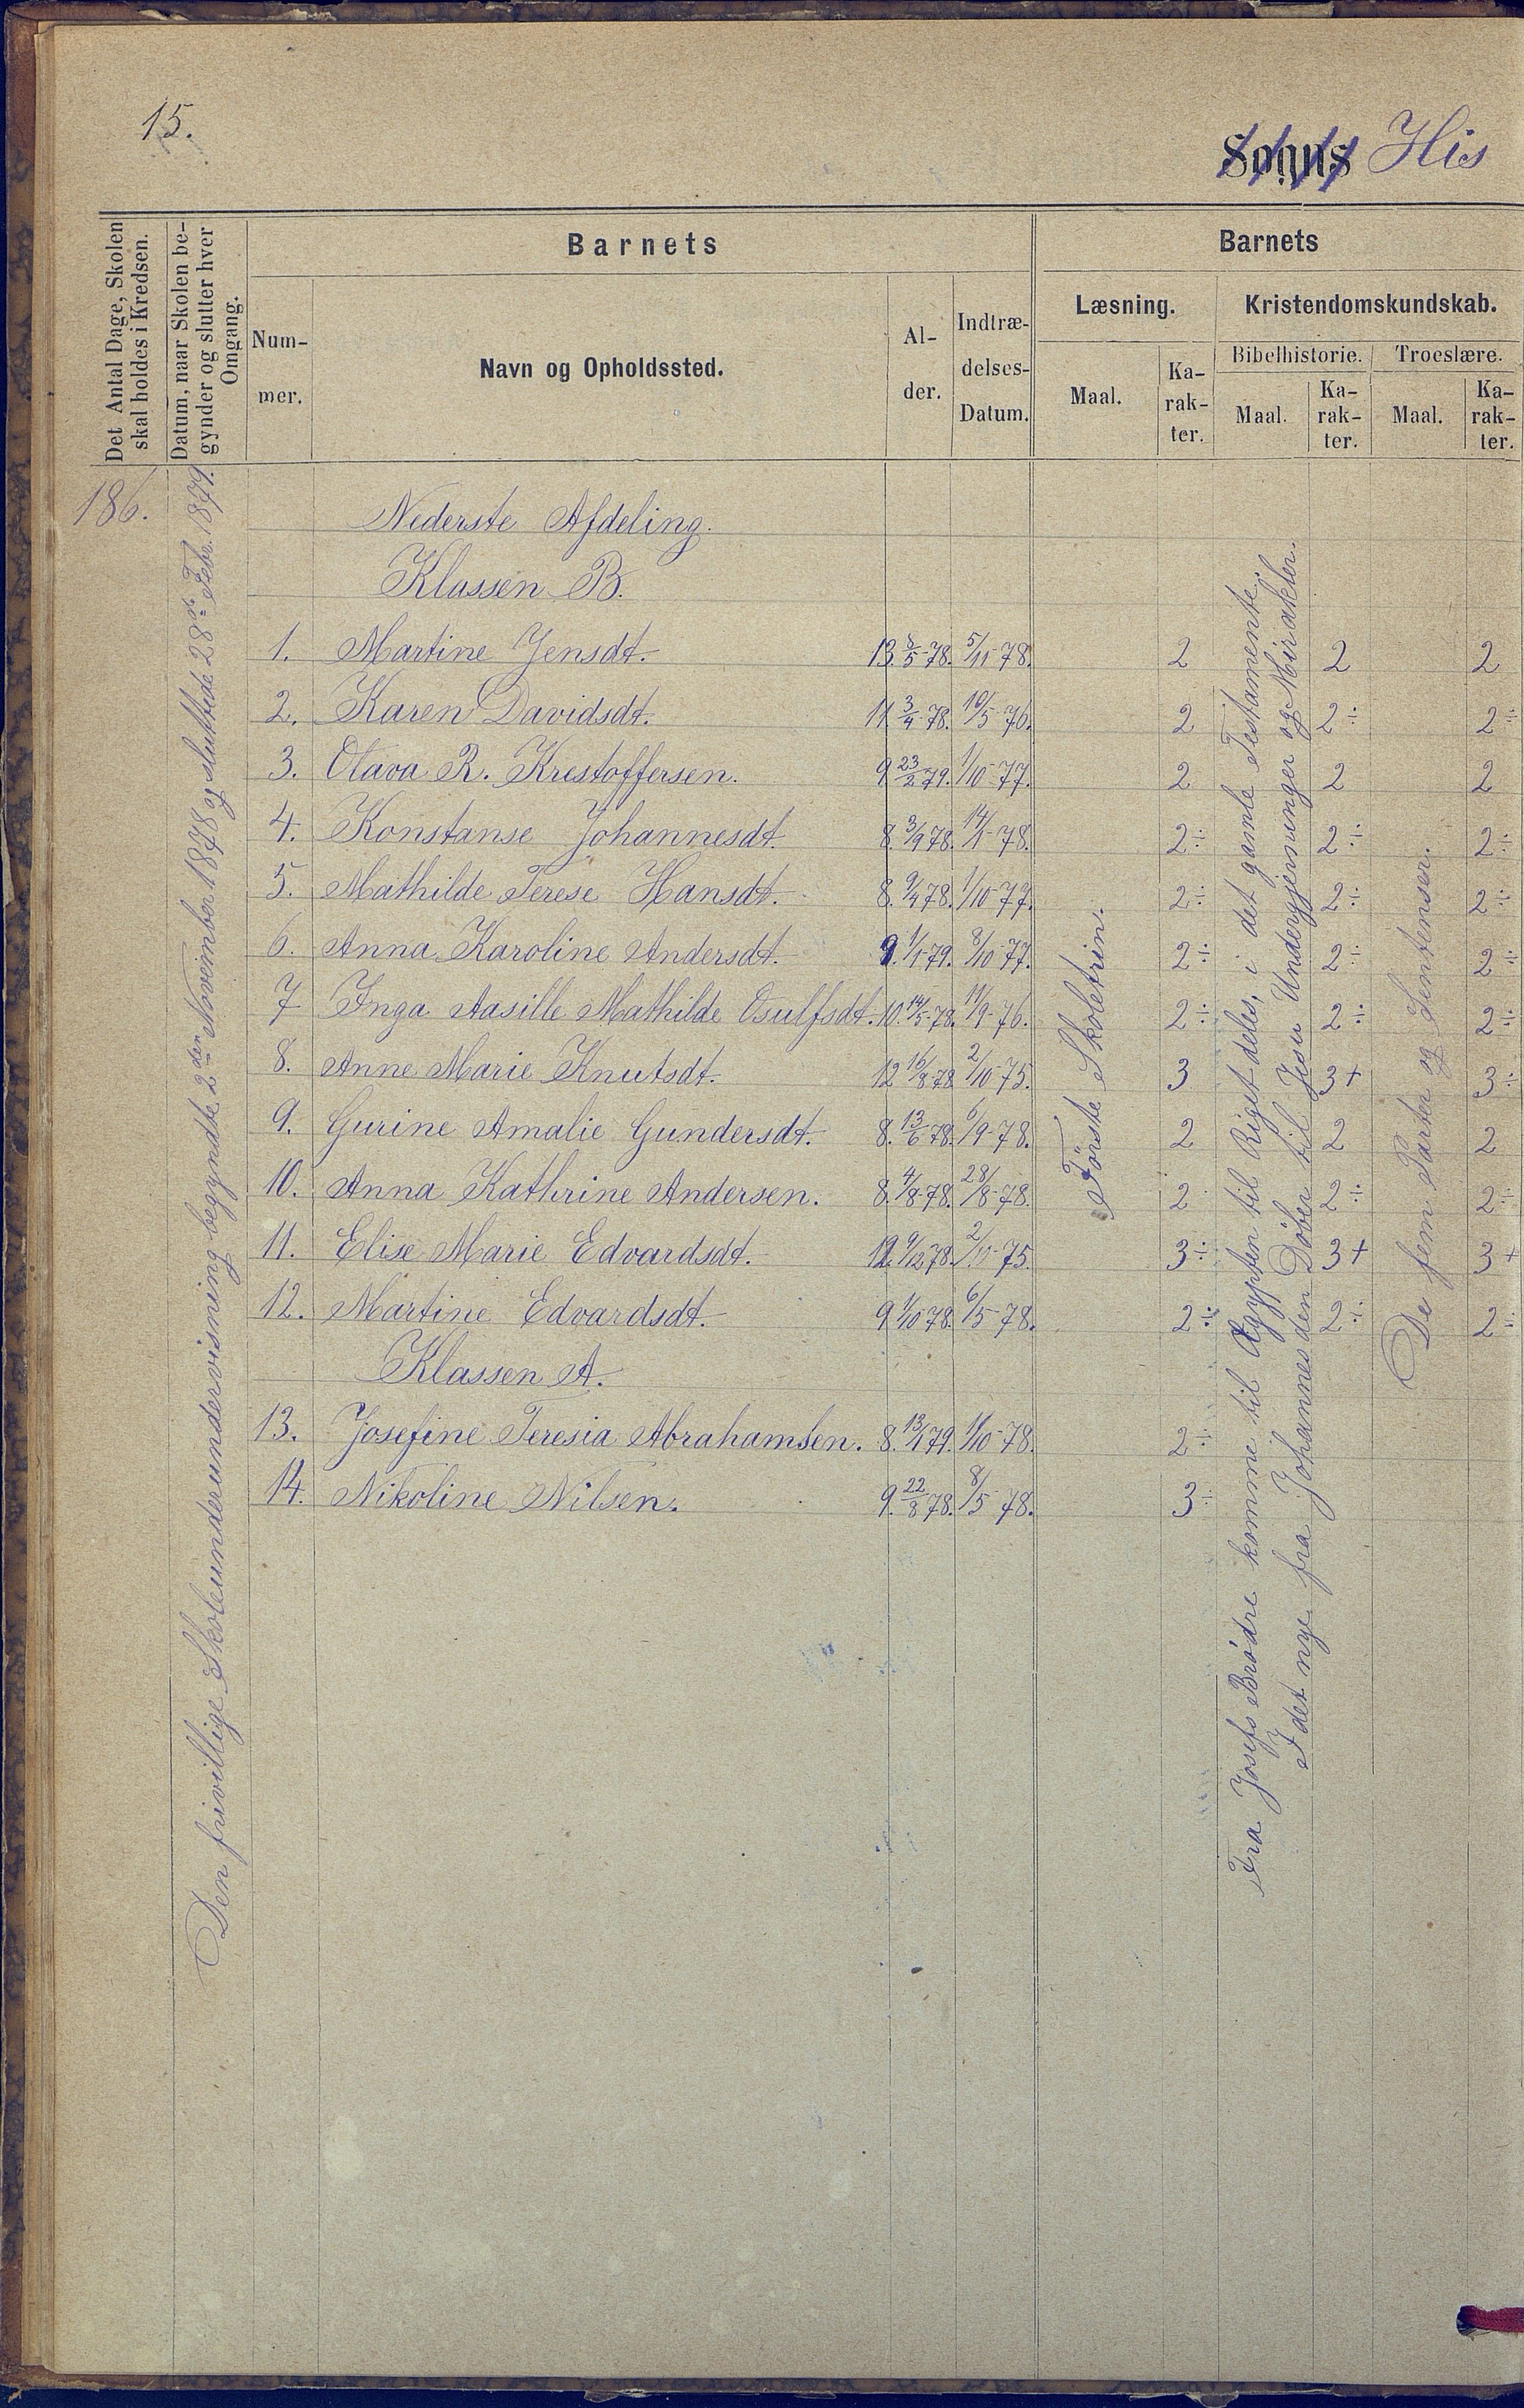 15.
Sogns His
Det Antal Dage, Skolen
skal holdes i Kredsen.
Datum, naar Skolen be-
gynder og slutter hver
Omgang.
Barnets
Num-
mer.
Navn og Opholdssted.
Al-
der.
Indtræ-
delses-
Datum.
Barnets
Læsning.
Maal.
Ka-
rak-
ter.
Kristendomskundskab.
Bibelhistorie.
Maal.
Ka-
rak-
ter.
Troeslære.
Maal.
Ka-
rak-
ter.
186.
Den frivillige Skoleunderundervisning begyndte 2den November 1878 og sluttede 28de Febr. 1879.
Nederste Afdeling.
Klassen B.
1. Martine Jensdt. 13. 8/5-78. 5/11-78. 2 2 2
2. Karen Davidsdt. 11 3/4-78. 10/5-76. 2 2÷ 2÷
3. Olava R. Krestoffersen. 9 23/2-79. 1/10-77. 2 2 2
4. Konstanse Johannesdt. 8. 3/9 78. 14/1-78. 2÷ 2÷ 2÷
5. Mathilde Terese Hansdt. 8. 9/4 78. 1/10-77. 2÷ 2÷ 2÷
6. Anna Karoline Andersdt. 9. 1/1-79. 8/10-77. 2÷ 2÷ 2÷
7 Inga Aasille Mathilde Osulfsdt. 10. 14/5-78. 11/9-76. 2÷ 2÷ 2÷
8. Anne Marie Knutsdt. 12 16/8-78 2/10-75. 3 3+ 3÷
9. Gurine Amalie Gundersdt. 8. 13/6-78. 6/9-78. 2 2 2
10. Anna Kathrine Andersen. 8. 4/8-78. 28/8-78. 2 2÷ 2÷
11. Elise Marie Edvardsdt. 12. 9/12 78. 2/11-75. 3÷ 3+ 3+
12. Martine Edvardsdt. 9 1/10 78. 6/5-78. 2÷ 2÷ 2÷
Klassen A.
13. Josefine Teresia Abrahamsen. 8. 13/1 79. 1/10-78. 2÷
14. Nikoline Nilsen. 9. 22/8 78. 8/5-78. 3÷
Første Skoletrin.
Fra Josefs Brødre komme til Ægypten til Riget deles, i det gamle Testamente;
I det nye fra Johannes den Døber til Jesu Undergjerninger og Mirakler.
De fem Parter og Sentenser.